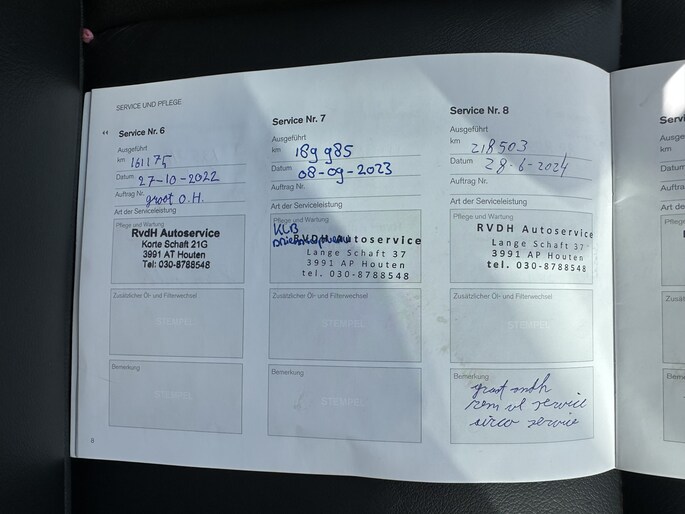 SERVICE UND PFLEGE
‹‹ Service Nr. 6
Ausgeführt
km 161175
Datum 27-10-2022
Auftrag Nr. groot O.H.
Art der Serviceleistung
Pflege und Wartung
RvdH Autoservice
Korte Schaft 21G
3991 AT Houten
Tel: 030-8788548
Zusätzlicher Öl- und Filterwechsel
STEMPEL
Bemerkung
STEMPEL
8
Service Nr. 7
Ausgeführt
km 189985
Datum 08-09-2023
Auftrag Nr.
Art der Serviceleistung
Pflege und Wartung
KLB
RVDH Autoservice
Lange Schaft 37
3991 AP Houten
tel. 030-8788548
Zusätzlicher Öl- und Filterwechsel
STEMPEL
Bemerkung
STEMPEL
Service Nr. 8
Ausgeführt
km 218503
Datum 28-6-2024
Auftrag Nr.
Art der Serviceleistung
Pflege und Wartung
RVDH Autoservice
Lange Schaft 37
3991 AP Houten
tel. 030-8788548
Zusätzlicher Öl- und Filterwechsel
STEMPEL
Bemerkung
groot ondh
rem vl service
airco service
Ausgeführt
km
Datum
Auftrag
Art der